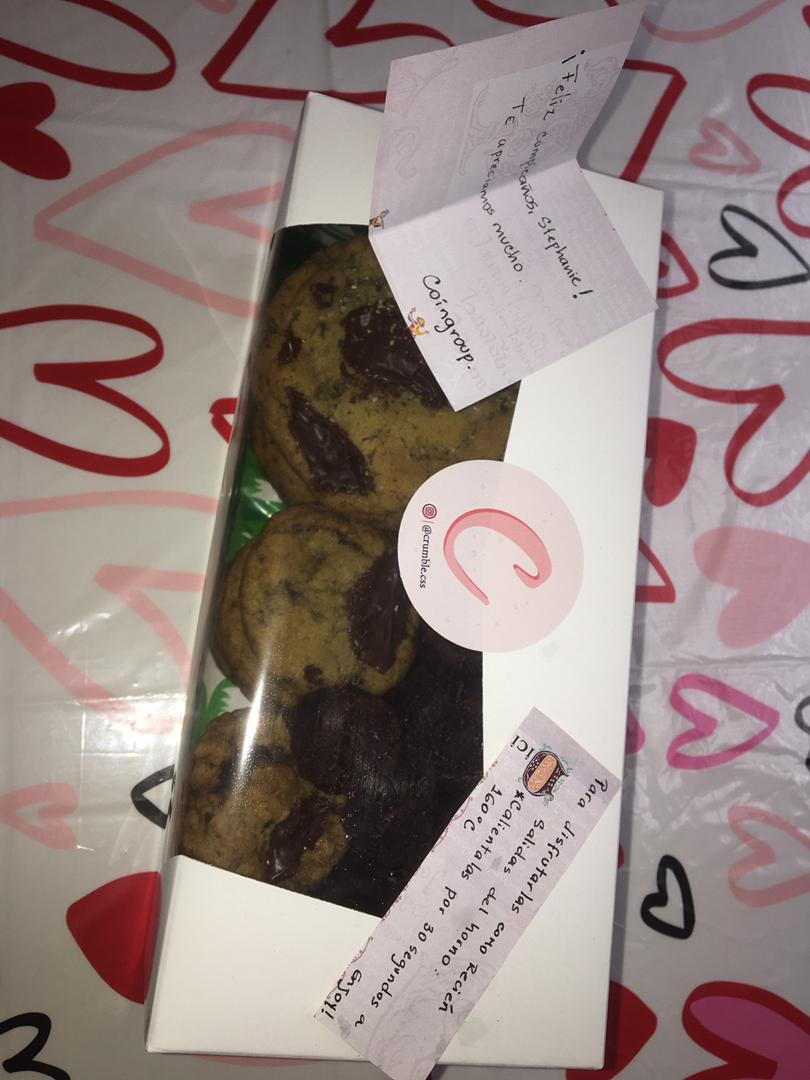 ¡Feliz cumpleaños, Stephanie!
Te apreciamos mucho.
Coingroup.
C
@crumble.css
Para disfrutarlas como recién
salidas del horno:
*Calientalas por 30 segundos a
160°C
Enjoy!